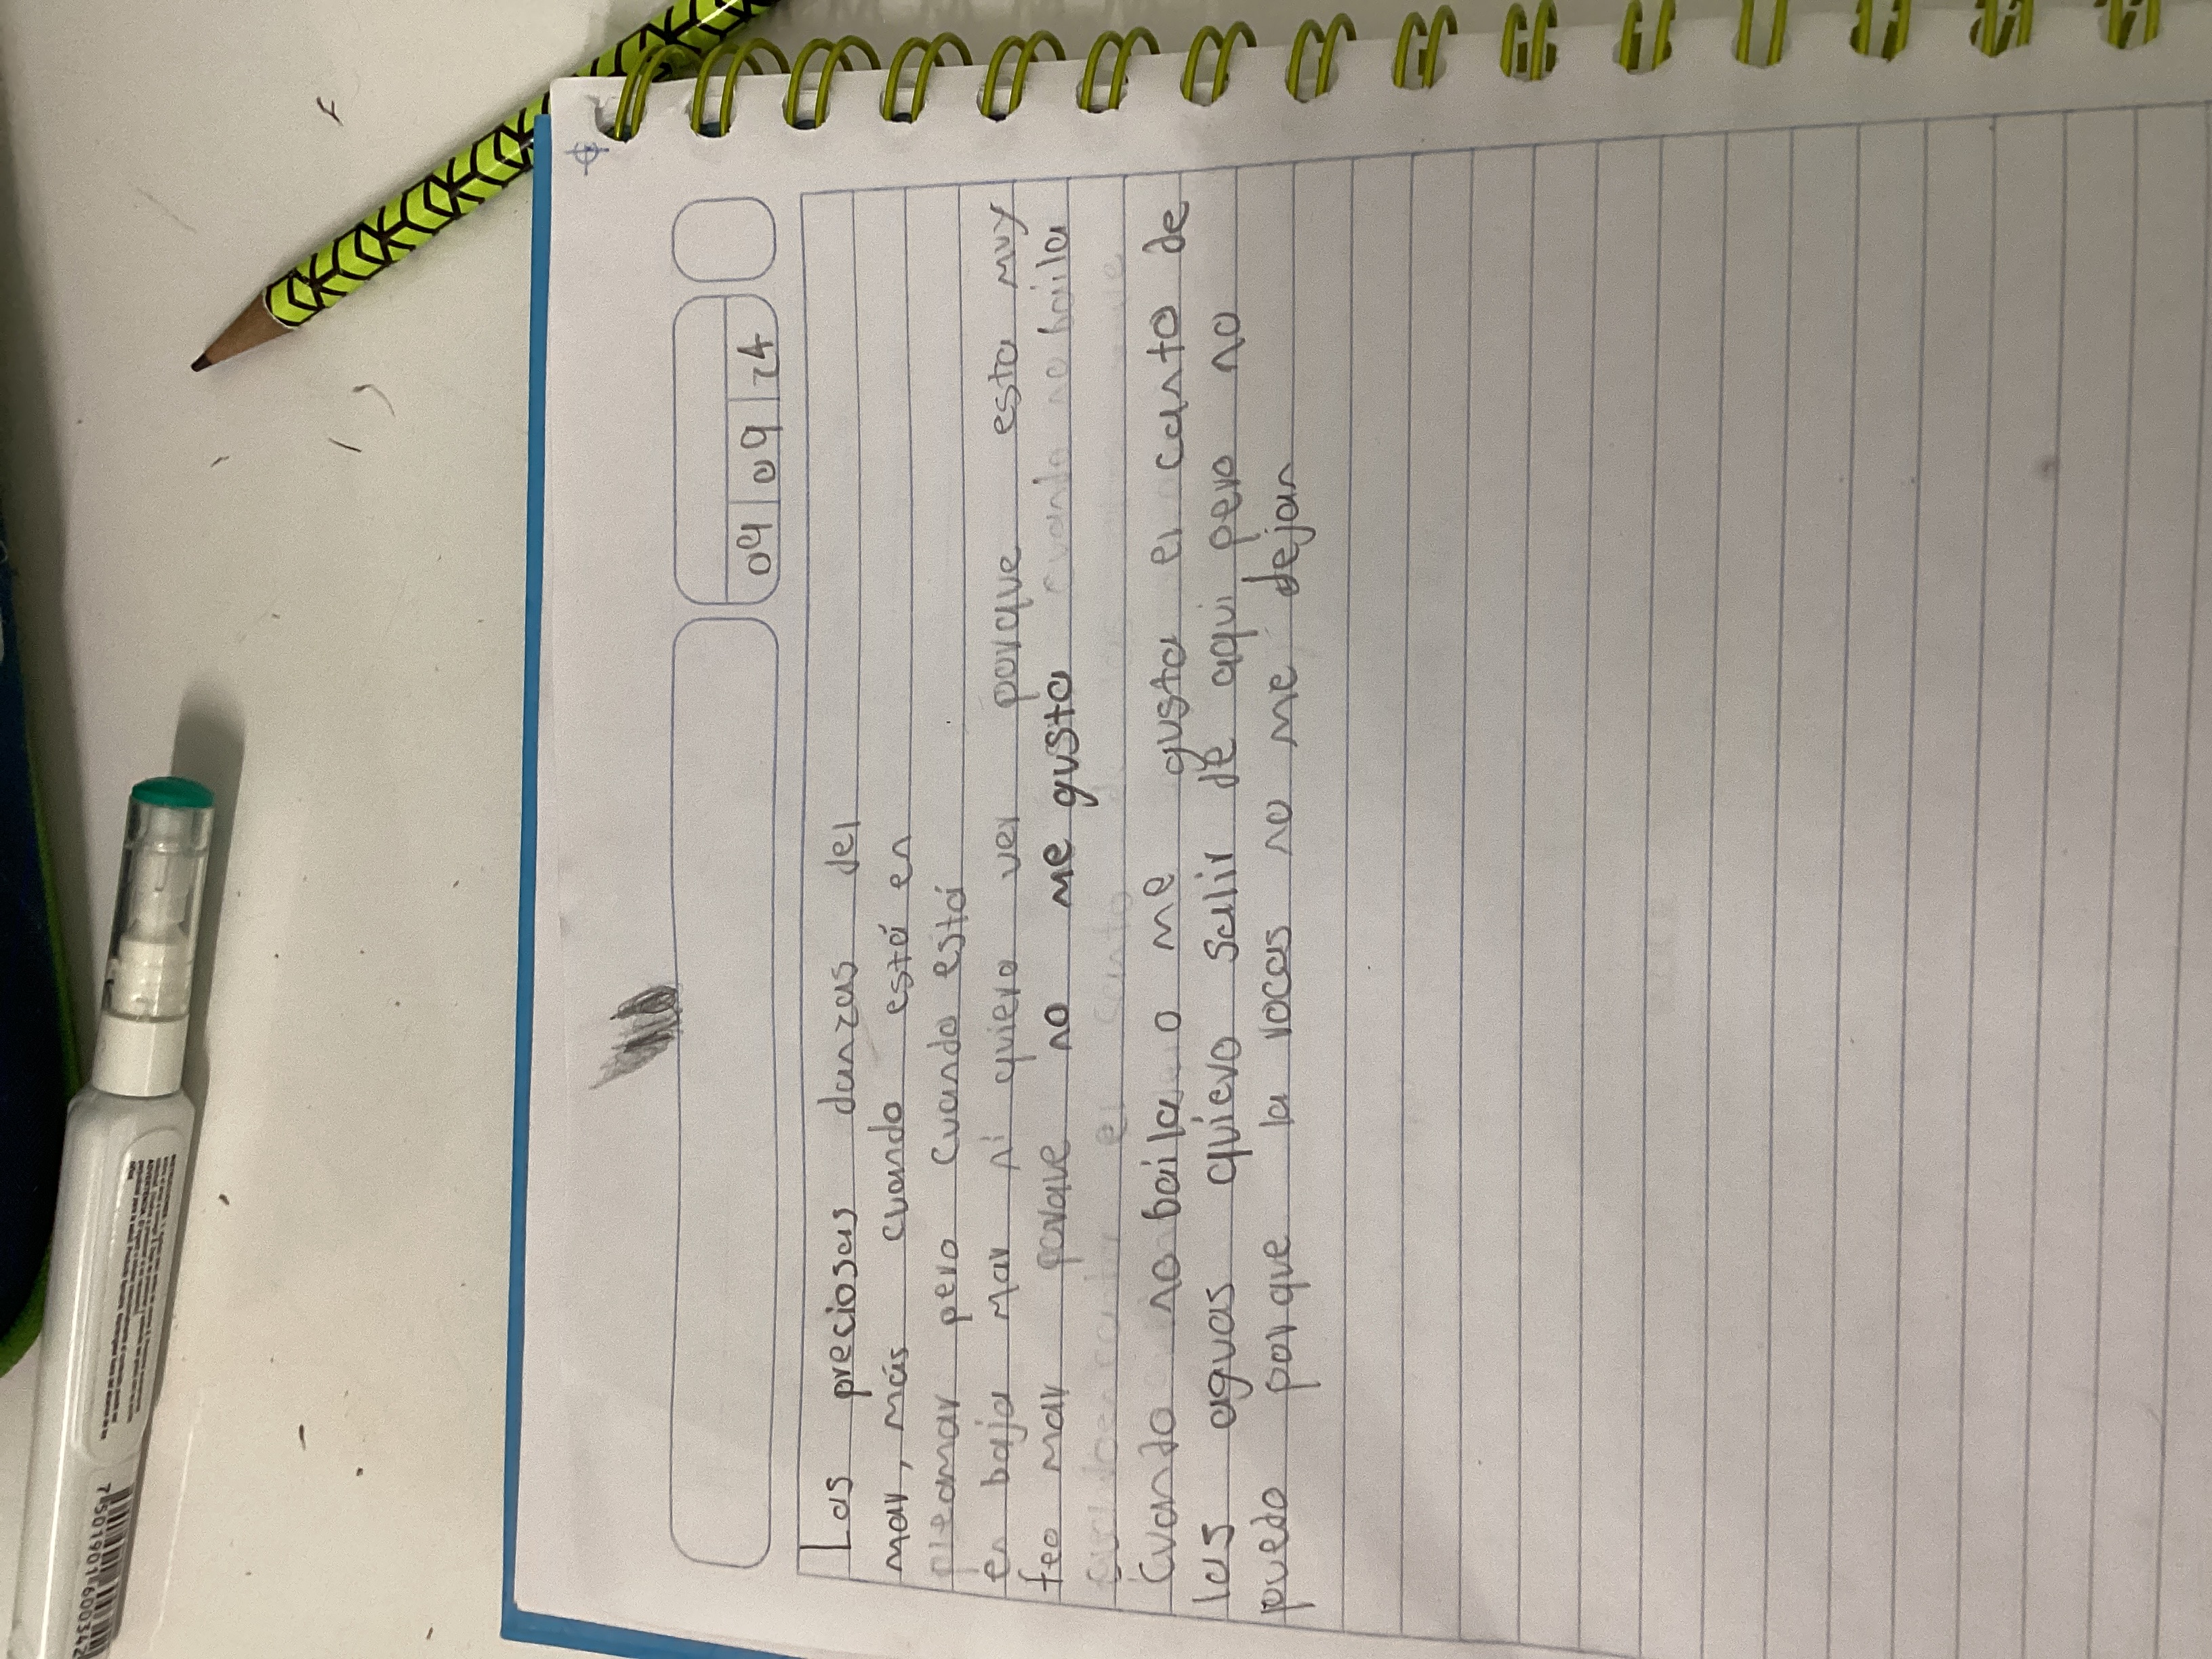 04 09 24
Las preciosas danzas del
mar, más cuando está en
pleamar pero cuando está
en baja mar ni quiero ver porque esta muy
feo mar porque no me gusta cuando no baila
Cuando no baila o me gusta el canto de
las aguas quiero salir de aqui pero no
puedo por que la rocas no me dejan
7501901600342